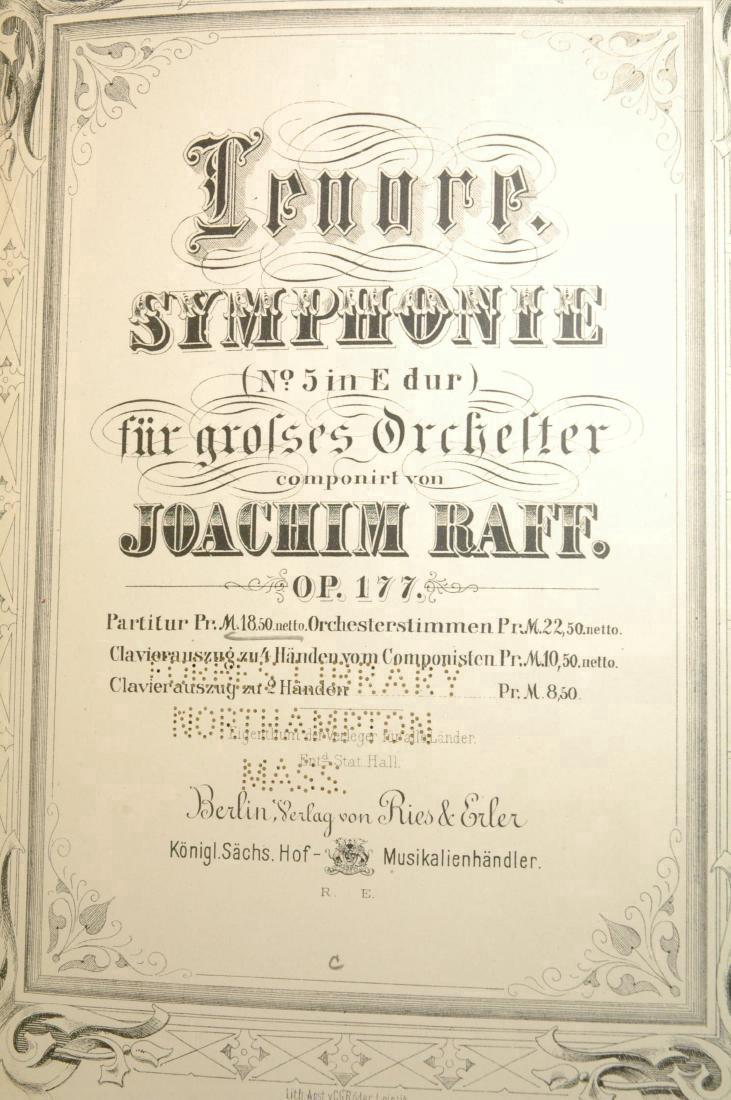 Lenore.
SYMPHONIE
(Nº 5 in E dur)
für groſses Orcheſter
componirt von
JOACHIM RAFF.
OP. 177.
Partitur Pr. M. 18,50. netto. Orchesterstimmen Pr. M. 22,50. netto.
Clavierauszug zu 4 Händen vom Componisten Pr. M. 10,50. netto.
FORBES LIBRARY
Clavierauszug zu 2 Händen Pr. M. 8,50.
NORTHAMPTON,
Eigenthum der Verleger für alle Länder.
Entd Stat. Hall.
MASS.
Berlin, Verlag von Ries & Erler
Königl. Sächs. Hof- Musikalienhändler.
R. E.
C
Lith. Anst. v. C.G. Röder, Leipzig.